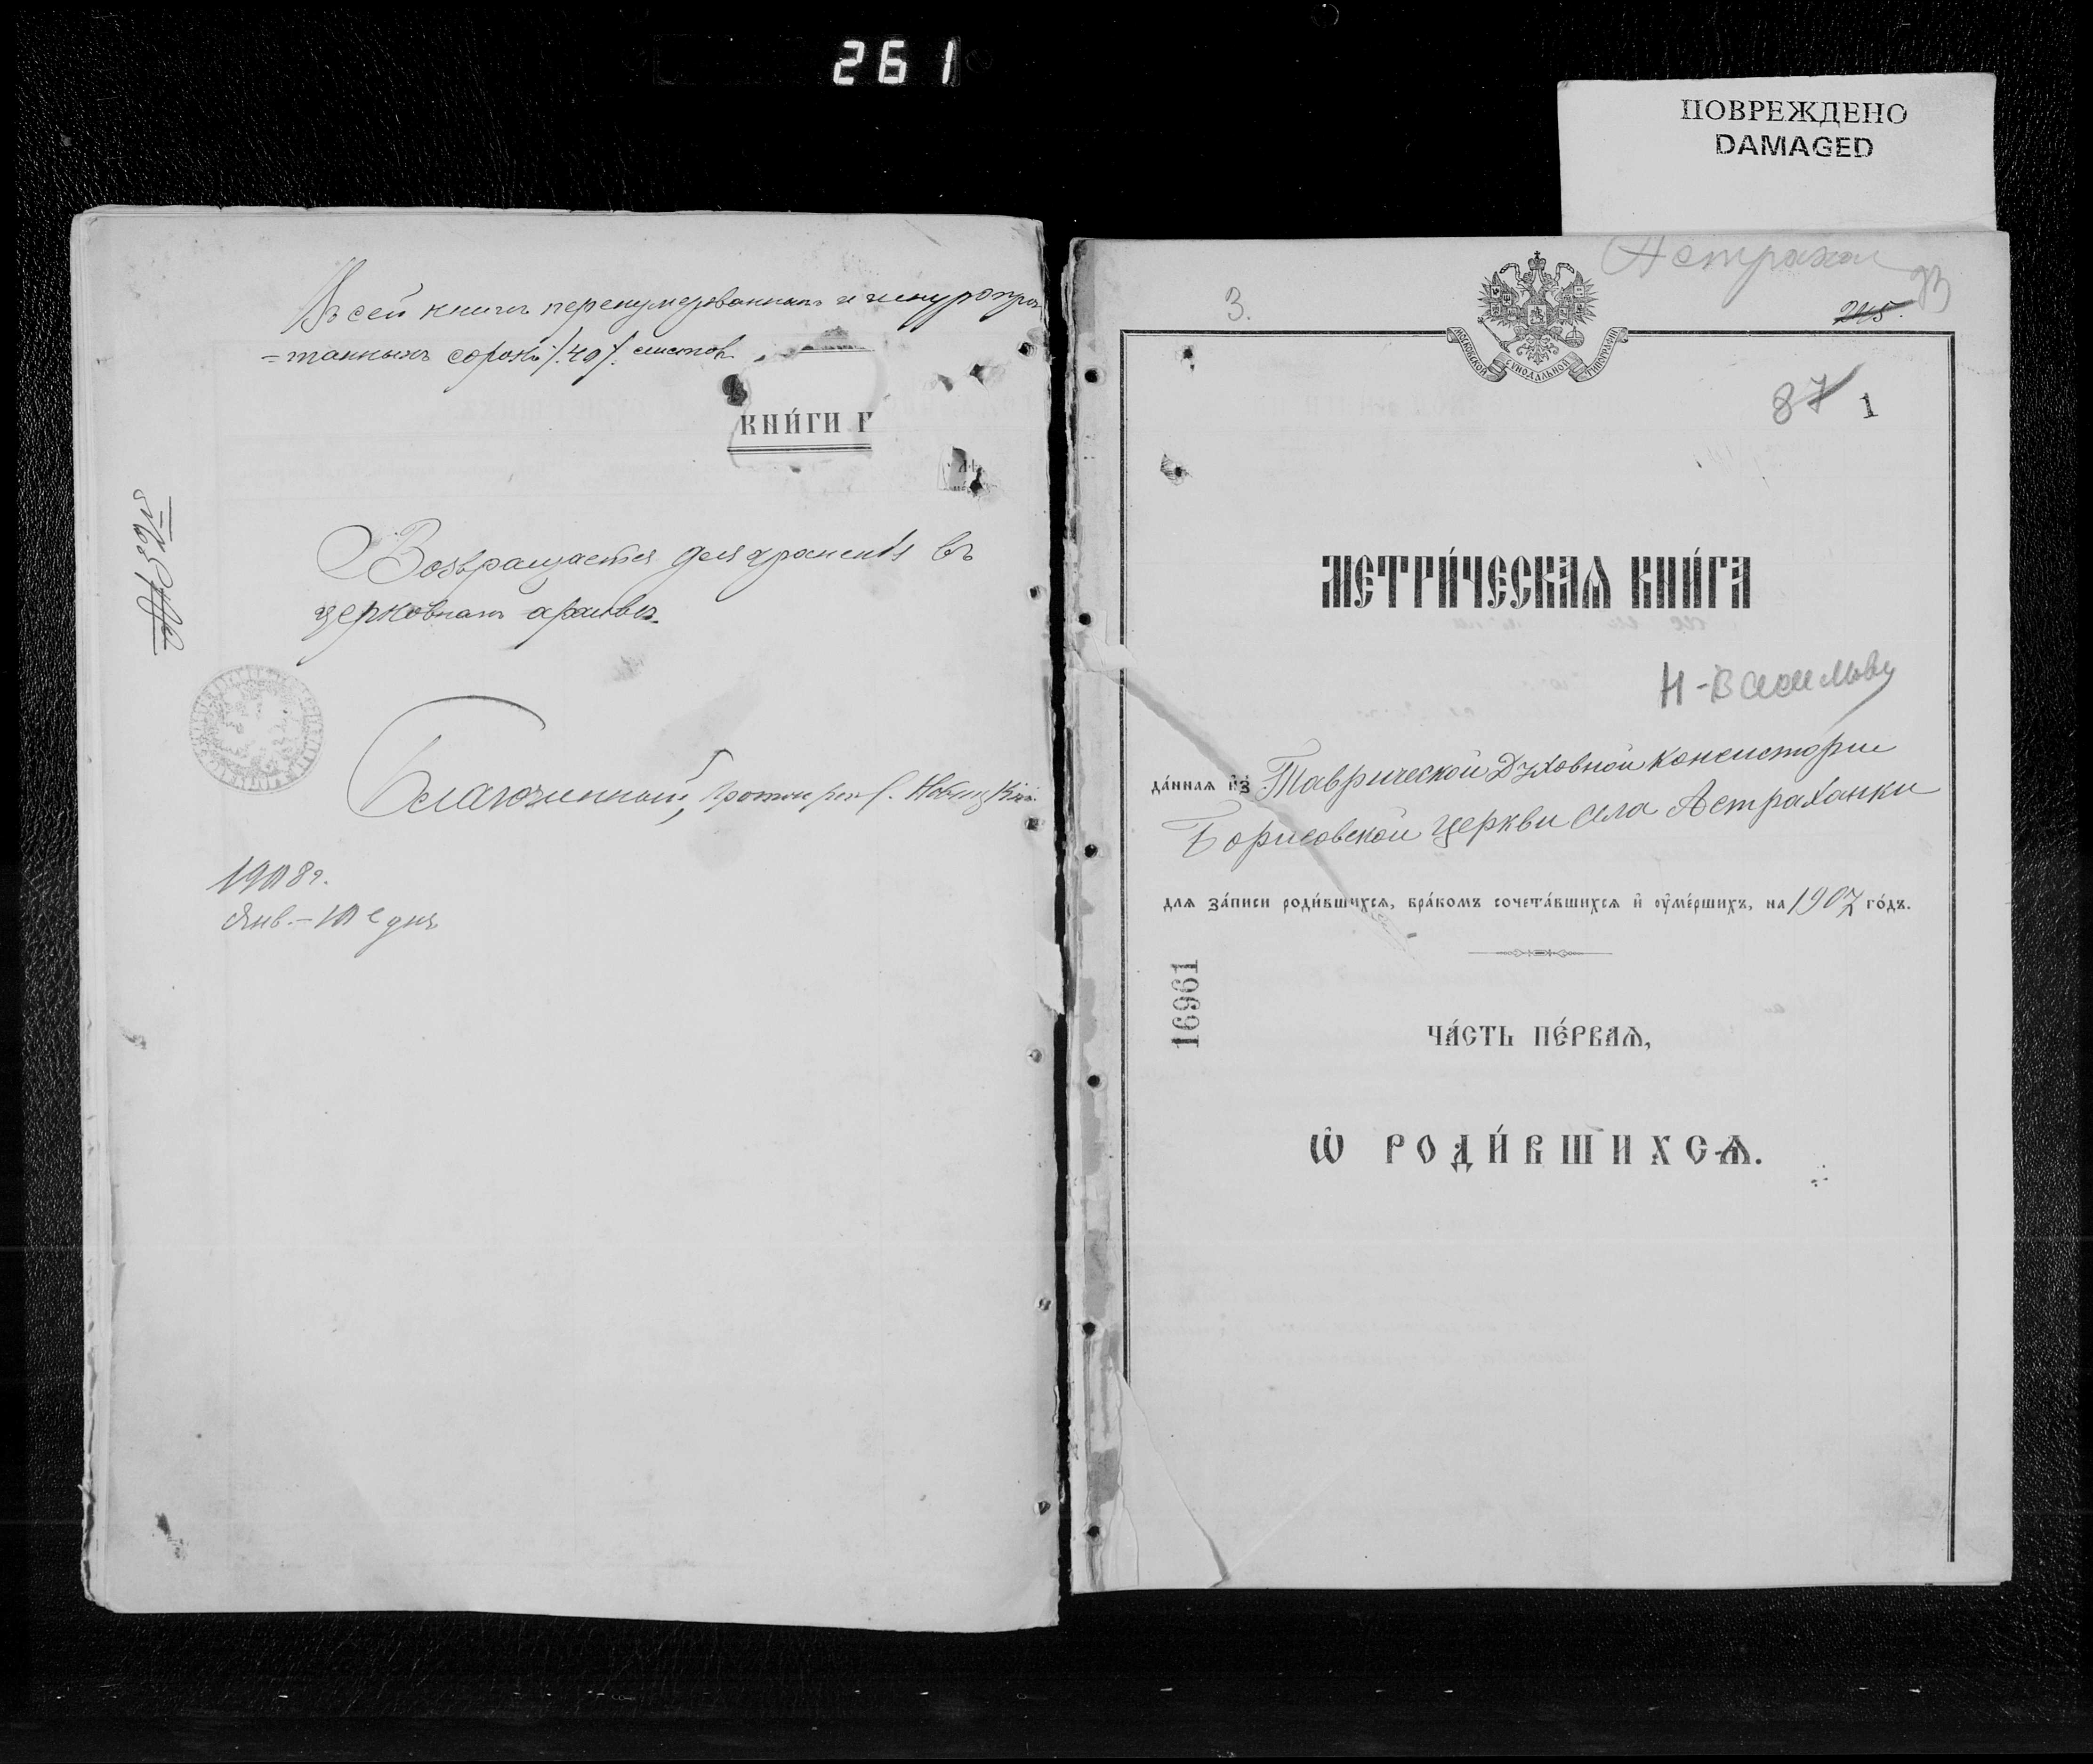 261
ПОВРЕЖДЕНО
DAMAGED
Въ сей книгѣ перенумерованныхъ и шнуропро
=танныхъ сорокъ /.40/. листовъ.
КНИ́ГИ
Возвращается для храненія въ
церковномъ архивѣ.
Благочинный, Протоіерей
1908 г.
Янв. – 10 е дня
Астрахан
3.
245.
МОСКОВСКОЙ СѴНОДАЛЬНОЙ ТИПОГРАФІИ
87 1
МЕТРИ́ЧЕСКАѦ КНИ́ГА
Н-Васильевку
да́ннаѧ и҆з̾ Таврической Духовной Консисторіи
Борисовской церкви села Астраханки
длѧ за́писи роди́вшихсѧ, бра́комъ сочета́вшихсѧ и҆ ᲂу҆ме́ршихъ, на 1907 го́дъ.
16961
ЧА́СТЬ ПЕ́РВАѦ,
Ѡ҆ РОДИ́ВШИХСѦ.